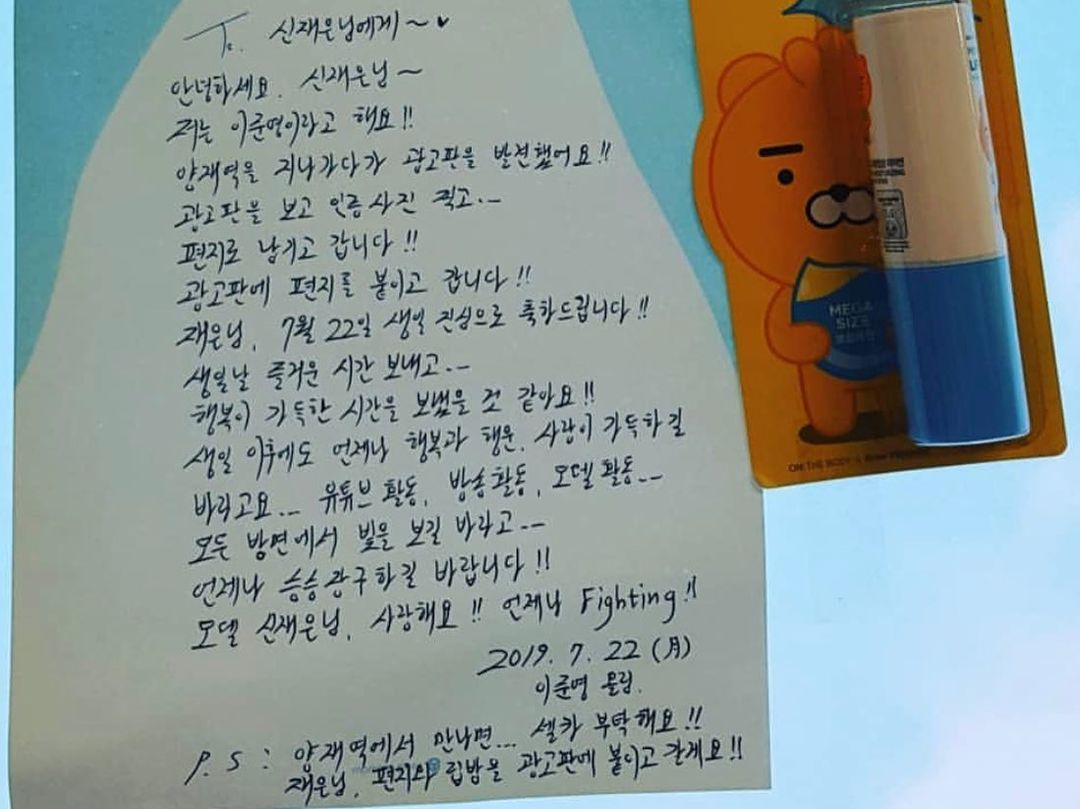 To. 신재은님에게~♥
안녕하세요. 신재은님~
저는 이준영이라고 해요!!
양재역을 지나가다가 광고판을 발견했어요!!
광고판을 보고 인증사진 찍고...
편지로 남기고 갑니다!!
광고판에 편지를 붙이고 갑니다!!
재은님, 7월 22일 생일 진심으로 축하드립니다!!
생일날 즐거운 시간 보내고...
행복이 가득한 시간을 보냈을 것 같아요!!
생일 이후에도 언제나 행복과 행운, 사랑이 가득하길
바라고요... 유튜브 활동, 방송활동, 모델 활동...
모든 방면에서 빛을 보길 바라고...
언제나 승승장구하길 바랍니다!!
모델 신재은님, 사랑해요!! 언제나 Fighting!!
2019. 7. 22 (月)
이준영 올림.
P.S : 양재역에서 만나면... 셀카 부탁해요!!
재은님, 편지와 립밤을 광고판에 붙이고 갈게요!!
MEGA
SIZE
ON THE BODY